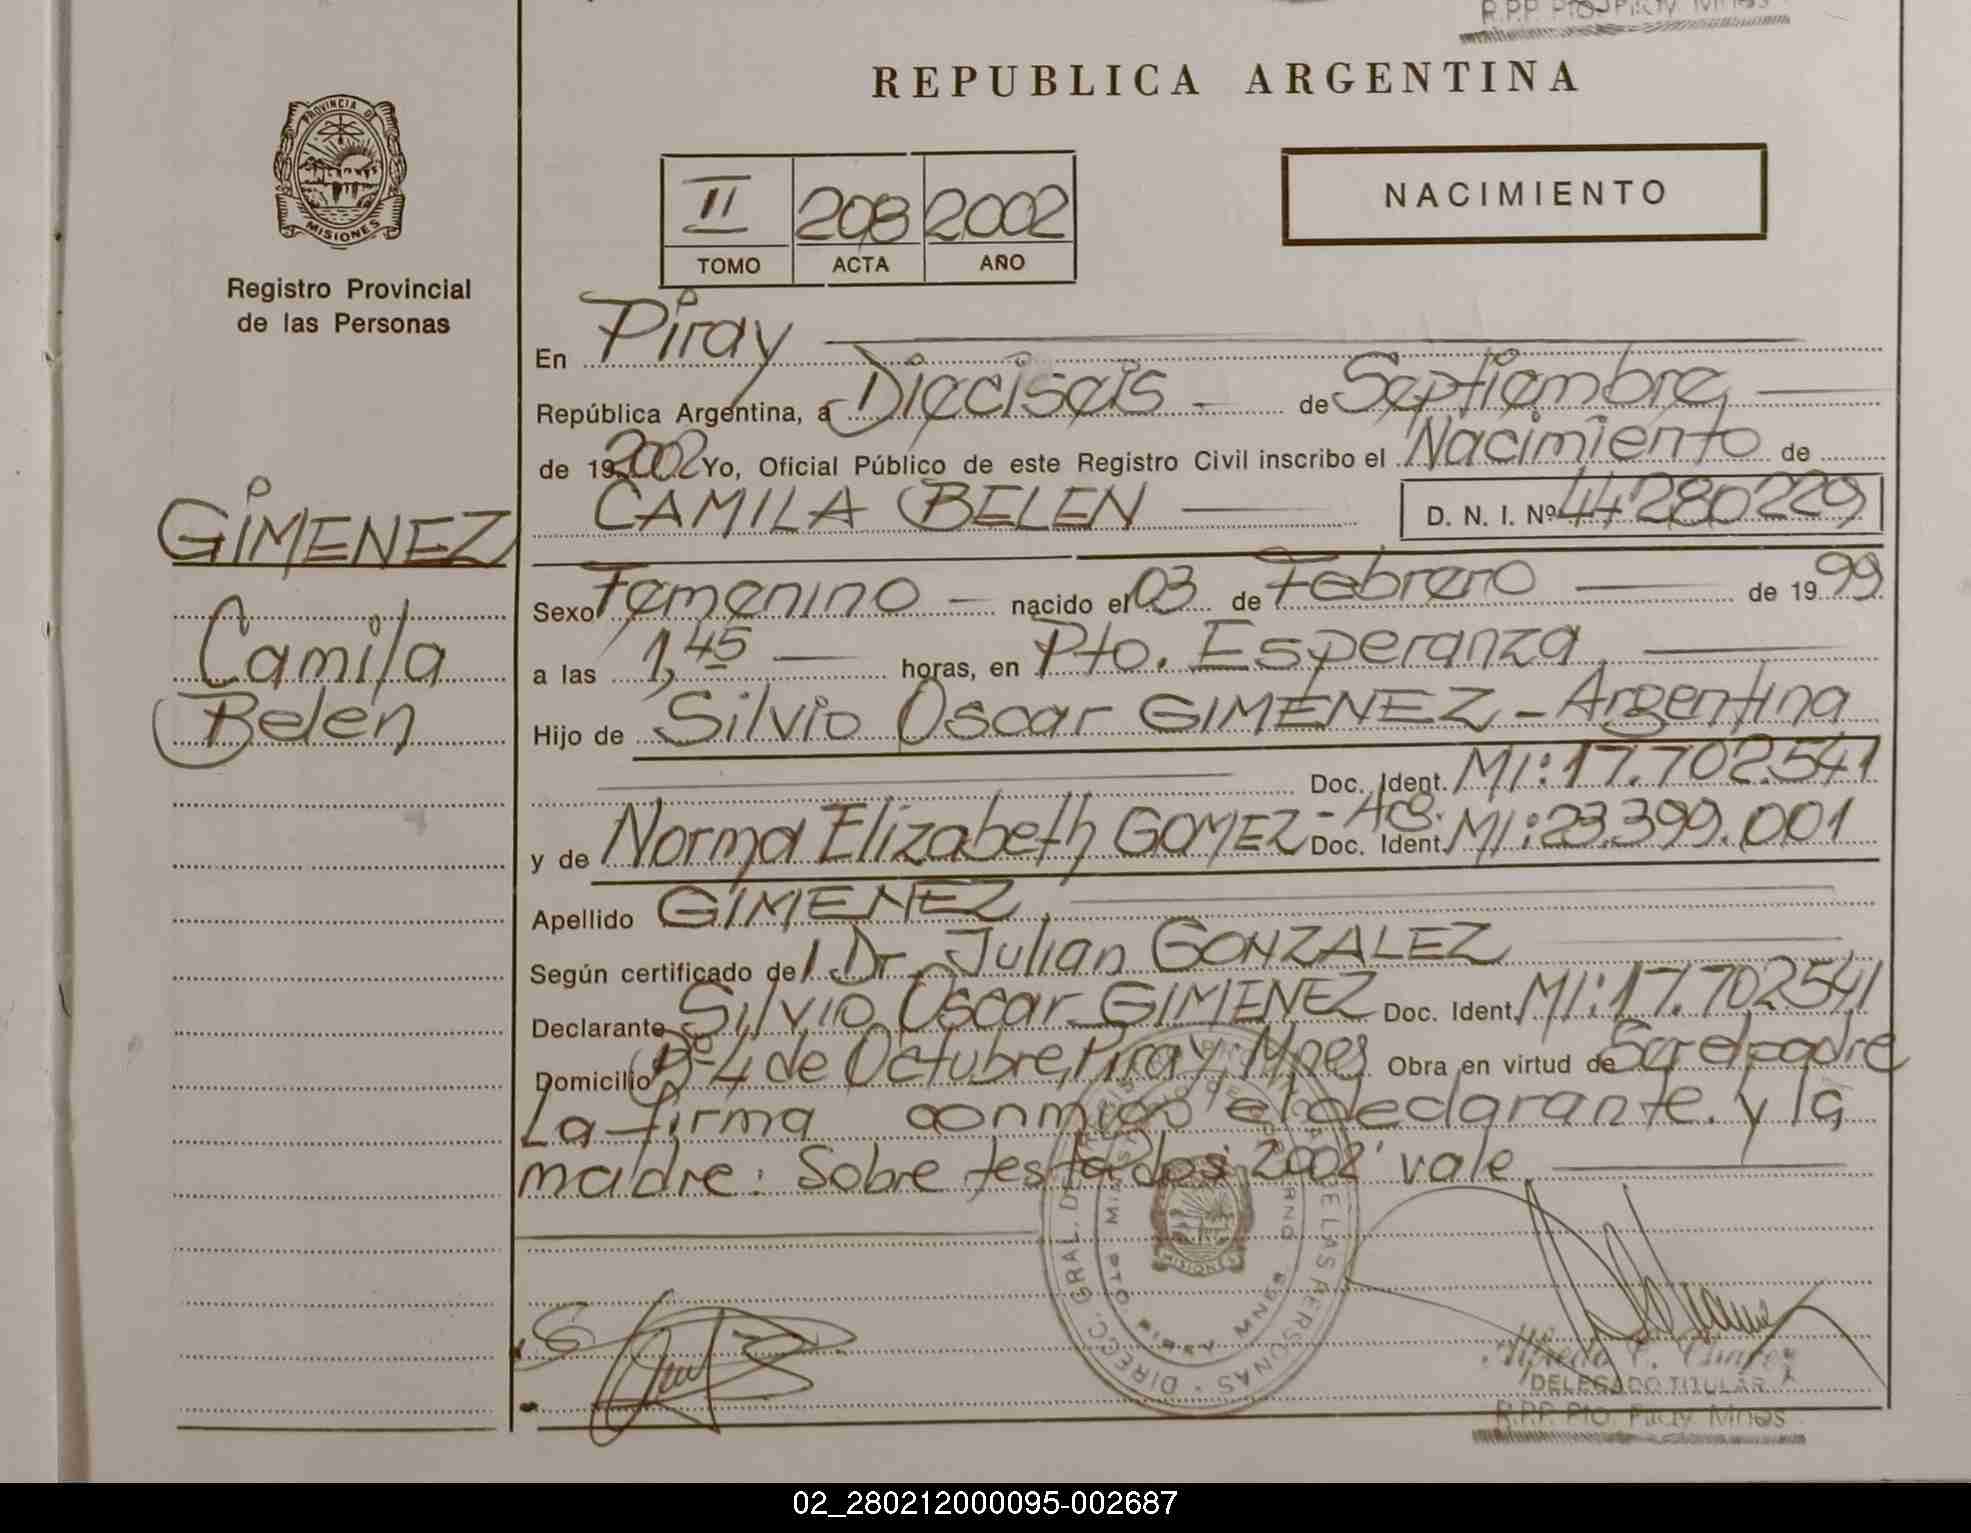 R.P.P. Pto. Piray Mnes
REPUBLICA ARGENTINA
PROVINCIA DE
MISIONES
Registro Provincial
de las Personas
II 208 2002
TOMO ACTA AÑO
NACIMIENTO
En Piray
República Argentina, a Dieciseis de Septiembre
de 19 2002 Yo, Oficial Público de este Registro Civil inscribo el Nacimiento de
CAMILA BELEN D. N. I. Nº 44280229
GIMENEZ
Camila
Belén
Sexo Femenino nacido el 03 de Febrero de 1999
a las 1,45 horas, en Pto. Esperanza
Hijo de Silvio Oscar GIMENEZ - Argentina
Doc. Ident. MI: 17.702.541
y de Norma Elizabeth GOMEZ - Arg. Doc. Ident. MI: 23.399.001
Apellido GIMENEZ
Según certificado del Dr. Julian GONZALEZ
Declarante Silvio Oscar GIMENEZ Doc. Ident. MI: 17.702541
Domicilio Bº 4 de Octubre, Piray, Mnes Obra en virtud de Ser el padre
La firma conmigo el declarante. y la
madre: Sobre testados '2002' vale
DIRECC. GRAL. DE LAS PERSONAS
PTO PIRAY MNES
MISIONES
Alfredo C. Chavez
DELEGADO TITULAR
R.P.P. Pto. Piray Mnes
02_280212000095-002687